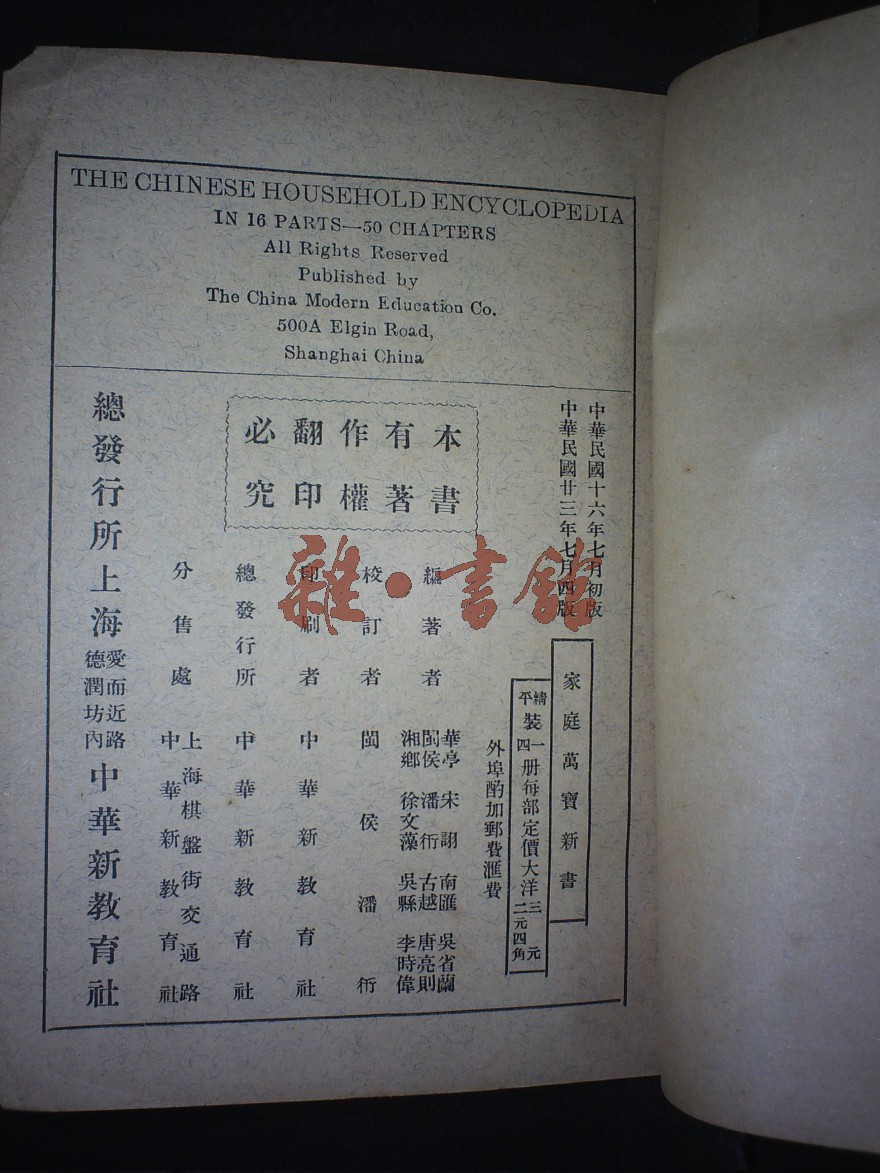 THE CHINESE HOUSEHOLD ENCYCLOPEDIA
IN 16 PARTS—50 CHAPTERS
All Rights Reserved
Published by
The China Modern Education Co.
500A Elgin Road,
Shanghai China
中華民國十六年七月初版
中華民國廿三年七月四版
家庭萬寶新書
精裝一册每部定價大洋三元
平裝四册每部定價大洋二元四角
外埠酌加郵費滙費
本書
有著
作權
翻印
必究
編著者
華亭 宋詡 南匯 吳省蘭
閩侯 潘衍 古越 唐亮則
湘鄉 徐文藻 吳縣 李時偉
校訂者 閩侯潘衍
印刷者 中華新教育社
總發行所 中華新教育社
分售處 上海棋盤街交通路
中華新教育社
總發行所上海愛而近路德潤坊內中華新教育社
雜·書館